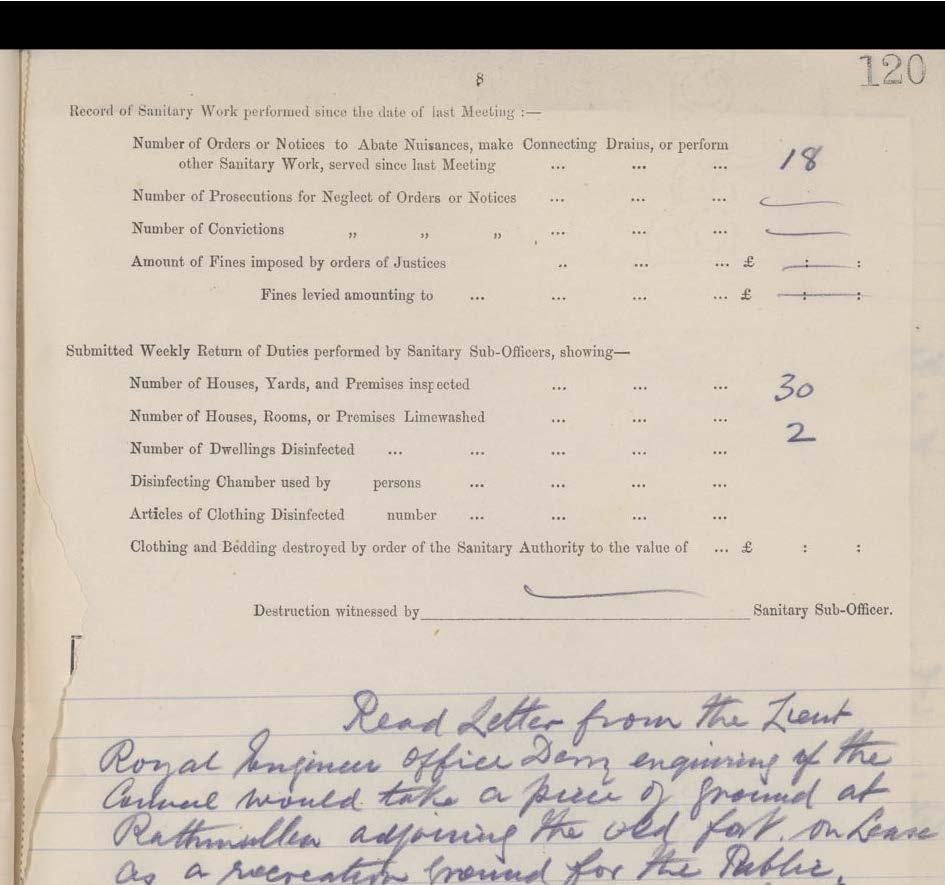 8
120
Record of Sanitary Work performed since the date of last Meeting :—
Number of Orders or Notices to Abate Nuisances, make Connecting Drains, or perform
other Sanitary Work, served since last Meeting ... ... ... 18
Number of Prosecutions for Neglect of Orders or Notices ... ... ... —
Number of Convictions „ „ „ ... ... ... —
Amount of Fines imposed by orders of Justices .. ... ... £ — : :
Fines levied amounting to ... ... ... ... £ — : :
Submitted Weekly Return of Duties performed by Sanitary Sub-Officers, showing—
Number of Houses, Yards, and Premises inspected ... ... ... 30
Number of Houses, Rooms, or Premises Limewashed ... ... ... 2
Number of Dwellings Disinfected ... ... ... ... ...
Disinfecting Chamber used by persons ... ... ... ...
Articles of Clothing Disinfected number ... ... ... ...
Clothing and Bedding destroyed by order of the Sanitary Authority to the value of ... £ : :
Destruction witnessed by Sanitary Sub-Officer.
Read Letter from the Lieut
Royal Engineer Office Derry enquiring if the
Council would take a piece of ground at
Rathmullen adjoining the old fort on Lease
as a recreation ground for the Public.